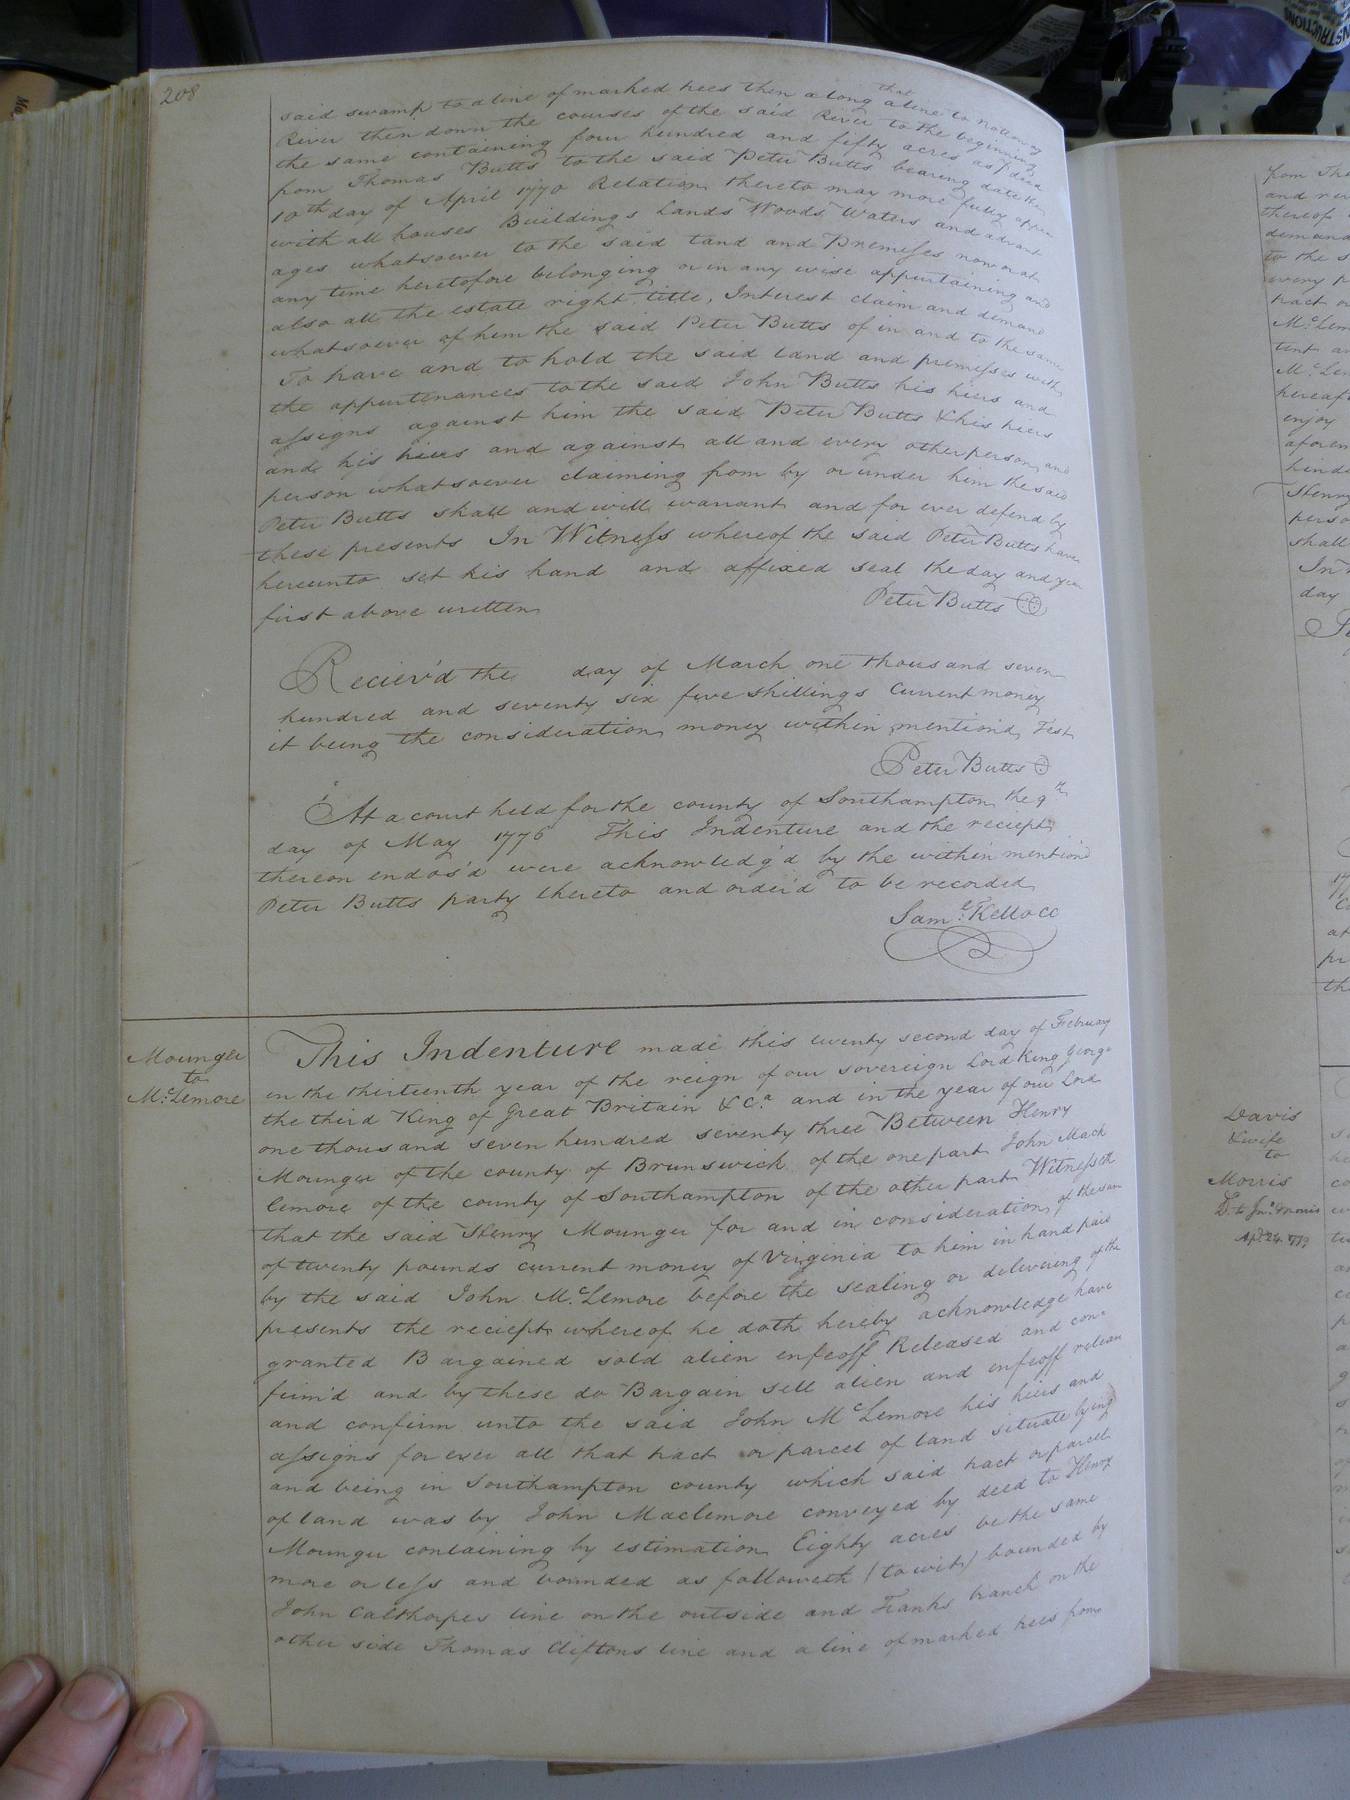 208
said swamp to a line of marked trees then along that a line to nottoway
River then down the courses of the said River to the beginning
the same containing four hundred and fifty acres as P deed
from Thomas Butts to the said Peter Butts bearing date the
10th day of April 1770 Relation thereto may more fully appear
with all houses Buildings Lands Woods Waters and advant
ages whatsoever to the said land and Premisses now or at
any time heretofore belonging or in any wise appurtaining and
also all the estate right, title, Interest claim and demand
whatsoever of him the said Peter Butts of in and to the same
To have and to hold the said land and premisses with
the appurtenances to the said John Butts his hiers and
assigns against him the said Peter Butts & his hiers
and his hiers and against all and every other person and
person whatsoever claiming from by or under him the said
Peter Butts shall and will warrant and for ever defend by
these presents In Witness whereof the said Peter Butts have
hereunto set his hand and affixed seal the day and year
first above written
Peter Butts
Reciev'd the day of March one thousand seven
hundred and seventy six five shillings Current money
it being the consideration money within mention'd Test
Peter Butts
At a court held for the county of Southampton the 9th
day of May 1776 This Indenture and the reciept
thereon endos'd were acknowledg'd by the within mention'd
Peter Butts party thereto and order'd to be recorded
Saml. Kello CC
Mounger
to
Mc.Lemore
This Indenture made this twenty second day of February
in the thirteenth year of the reign of our sovereign Lord King George
the third King of Great Britain &Ca. and in the year of our Lord
one thousand seven hundred seventy three Between Henry
Mounger of the county of Brunswick of the one part John Mack
lemore of the county of Southampton of the other part Witnesseth
that the said Henry Mounger for and in consideration of the sum
of twenty pounds current money of Virginia to him in hand paid
by the said John Mc.Lemore before the sealing or delivering of the
presents the reciept whereof he doth hereby acknowledge have
granted Bargained sold alien enfeoff Released and con-
firm'd and by these do Bargain sell alien and enfeoff release
and confirm unto the said John McLemore his hiers and
assigns for ever all that tract or parcel of land situate lying
and being in Southampton county which said tract or parcel
of land was by John Maclemore conveyed by deed to Henry
Mounger containing by estimation Eighty acres be the same
more or less and bounded as followeth (to wit) bounded by
John Calthorpes line on the outside and Franks branch on the
other side Thomas Cliftons line and a line of marked trees from
from The
and re
thereof
demand
to the s
every p
tract or
Mc.Lem
tent an
Mc.Lem
hereaf
enjoy
aforem
hinde
Henry
perso
shall
In
day
Davis
& wife
to
Morris
D. to Jno. Morris
Apl. 24. 1779